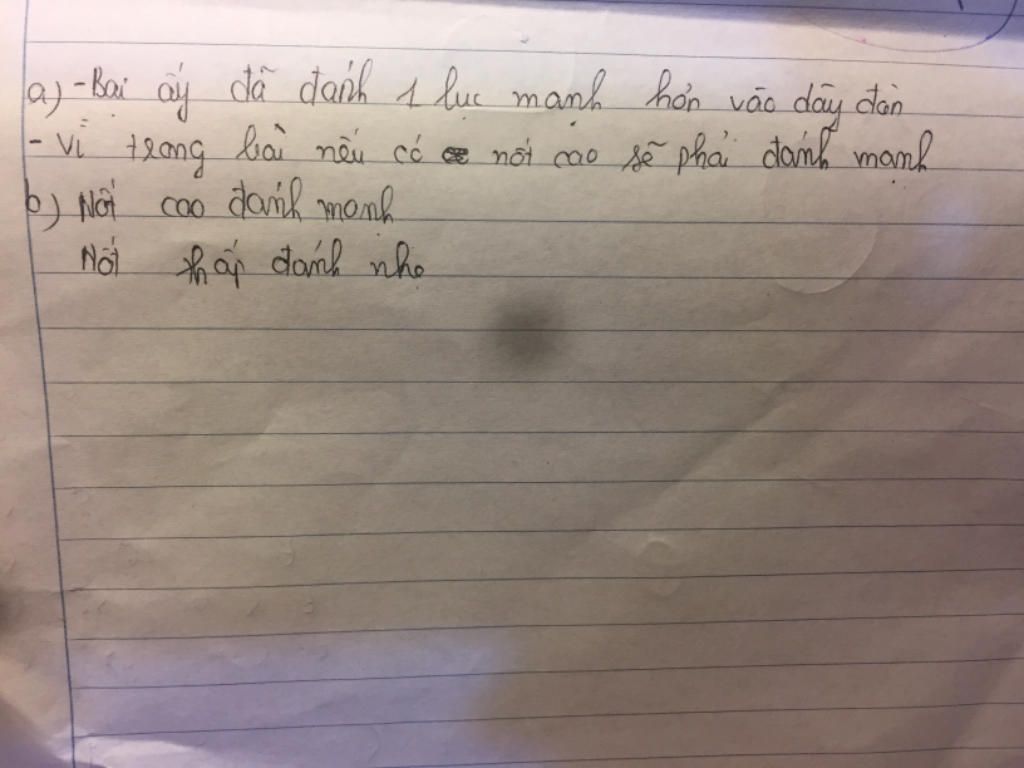 a) - Bại ấy đã đánh 1 lục mạnh hơn vào dãy đàn
- Vì trong bài nếu có nốt cao sẽ phải đánh mạnh
b) Nốt cao đánh mạnh
Nốt thấp đánh nhẹ